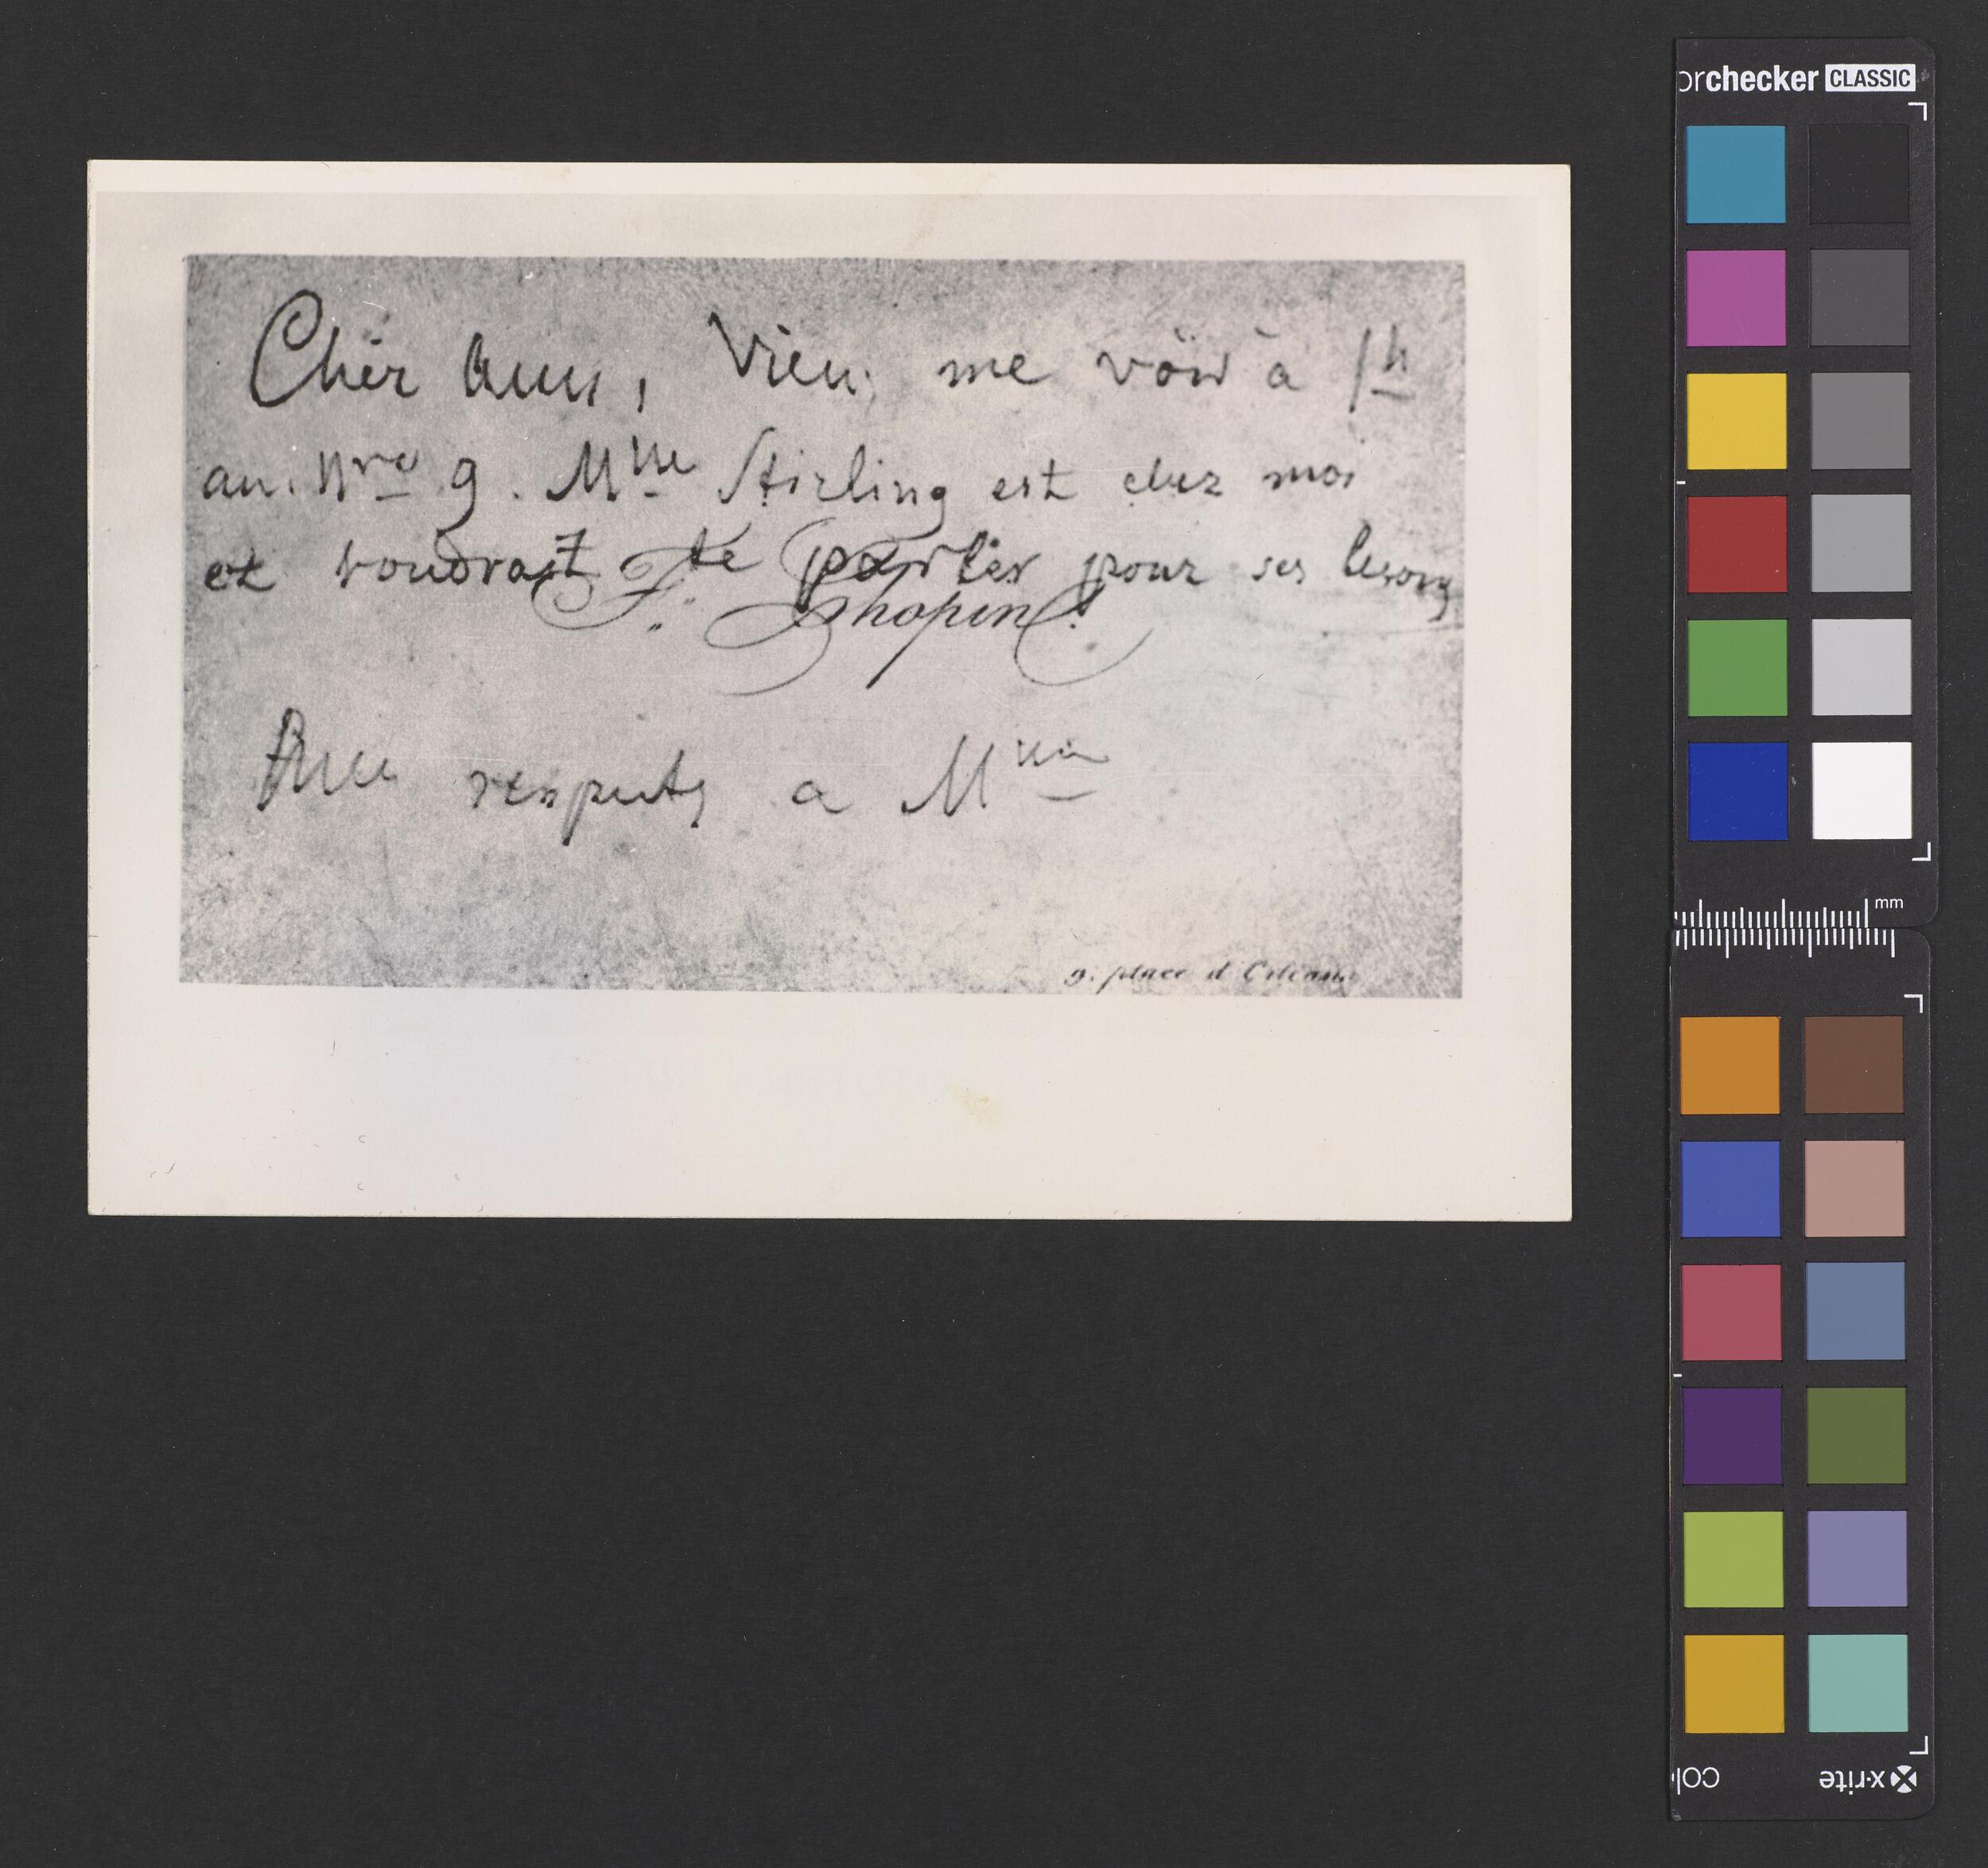 Cher ami, Viens me voir à 1h
au. Nro 9. Mlle Stirling est chez moi
et voudrait te parler pour ses leçons
F. Chopin.
respects a Mme
9. place d'Orléans
orchecker CLASSIC
mm
x-rite
col